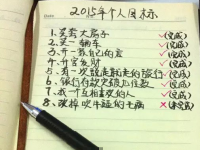 2015年个人目标
1、买套大房子 ✓(完成)
2、买一辆车 ✓(完成)
3、开一家自己的店 ✓(完成)
4、升官发财 ✓(完成)
5、有一次说走就走的旅行 ✓(完成)
6、银行存款突破几位数 ✓(完成)
7、找一个互相喜欢的人 ✓(完成)
8、改掉吹牛逼的毛病 ✗(未完成)